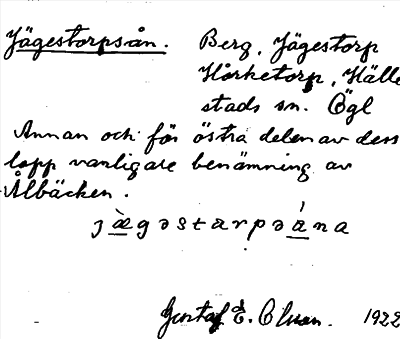 Jägestorpsån. Berg, Jägestorp
Hårketorp, Hälle
stads sn. Ögl
Annan och för östra delen av dess
lopp vanligare benämning av
Ålbäcken.
jæ̀gəstarpəána
Gustaf E. Olsson. 1922